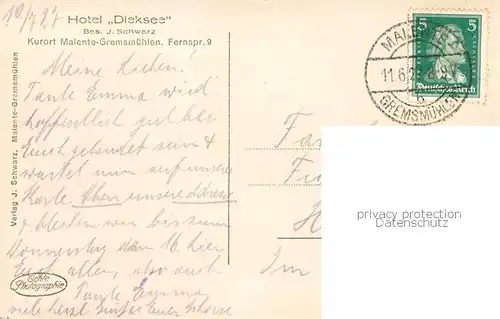 10/7 27
Hotel „Dieksee“
Bes. J. Schwarz
Kurort Malente-Gremsmühlen. Fernspr. 9
Meine Lieben!
Tante Emma wird
hoffentlich gut bei
Euch gelandet sein &
wartet nun auf unsere
Karte. Oben unsere Adresse
& bleiben wir bis zum
Donnerstag dem 16. hier
Euch allen, also auch
Tante Emma
Verlag J. Schwarz, Malente-Gremsmühlen
Echte
Photographie
MALENTE
11.6.2
GREMSMÜHLEN
5 5
Deutsches Reich
Im
privacy protection
Datenschutz